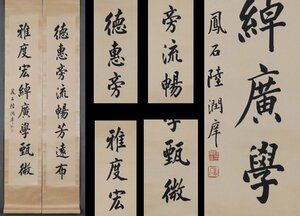 德惠旁流暢芳遠布
雅度宏綽廣學甄微
鳳石陸潤庠
德惠旁
雅度宏
旁流暢
學甄微
綽廣學
鳳石陸潤庠